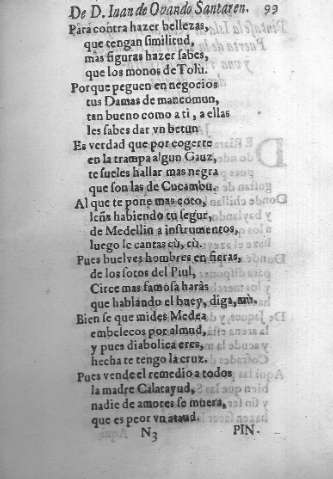 De D. Iuan de Ovando Santaren. 99
Para contra hazer bellezas,
que tengan similitud,
mas figuras hazer sabes,
que los monos de Tolù.
Porque peguen en negocios
tus Damas de mancomun,
tan bueno como a ti, a ellas
les sabes dar vn betun
Es verdad que por cogerte
en la trampa algun Gauz,
te sueles hallar mas negra
que son las de Cucambu.
Al que te pone mas coto,
leñs habiendo tu segur,
de Medellin a instrumentos,
luego le cantas cù, cù.
Pues buelves hombres en fieras,
de los sotos del Piul,
Circe mas famosa haràs
que hablando el buey, diga, mù.
Bien se que mides Medea
embelecos por almud,
y pues diabolica eres,
hecha te tengo la cruz.
Pues vende el remedio a todos
la madre Calatayud,
nadie de amores se muera,
que es peor vn ataud.
N3 PIN-